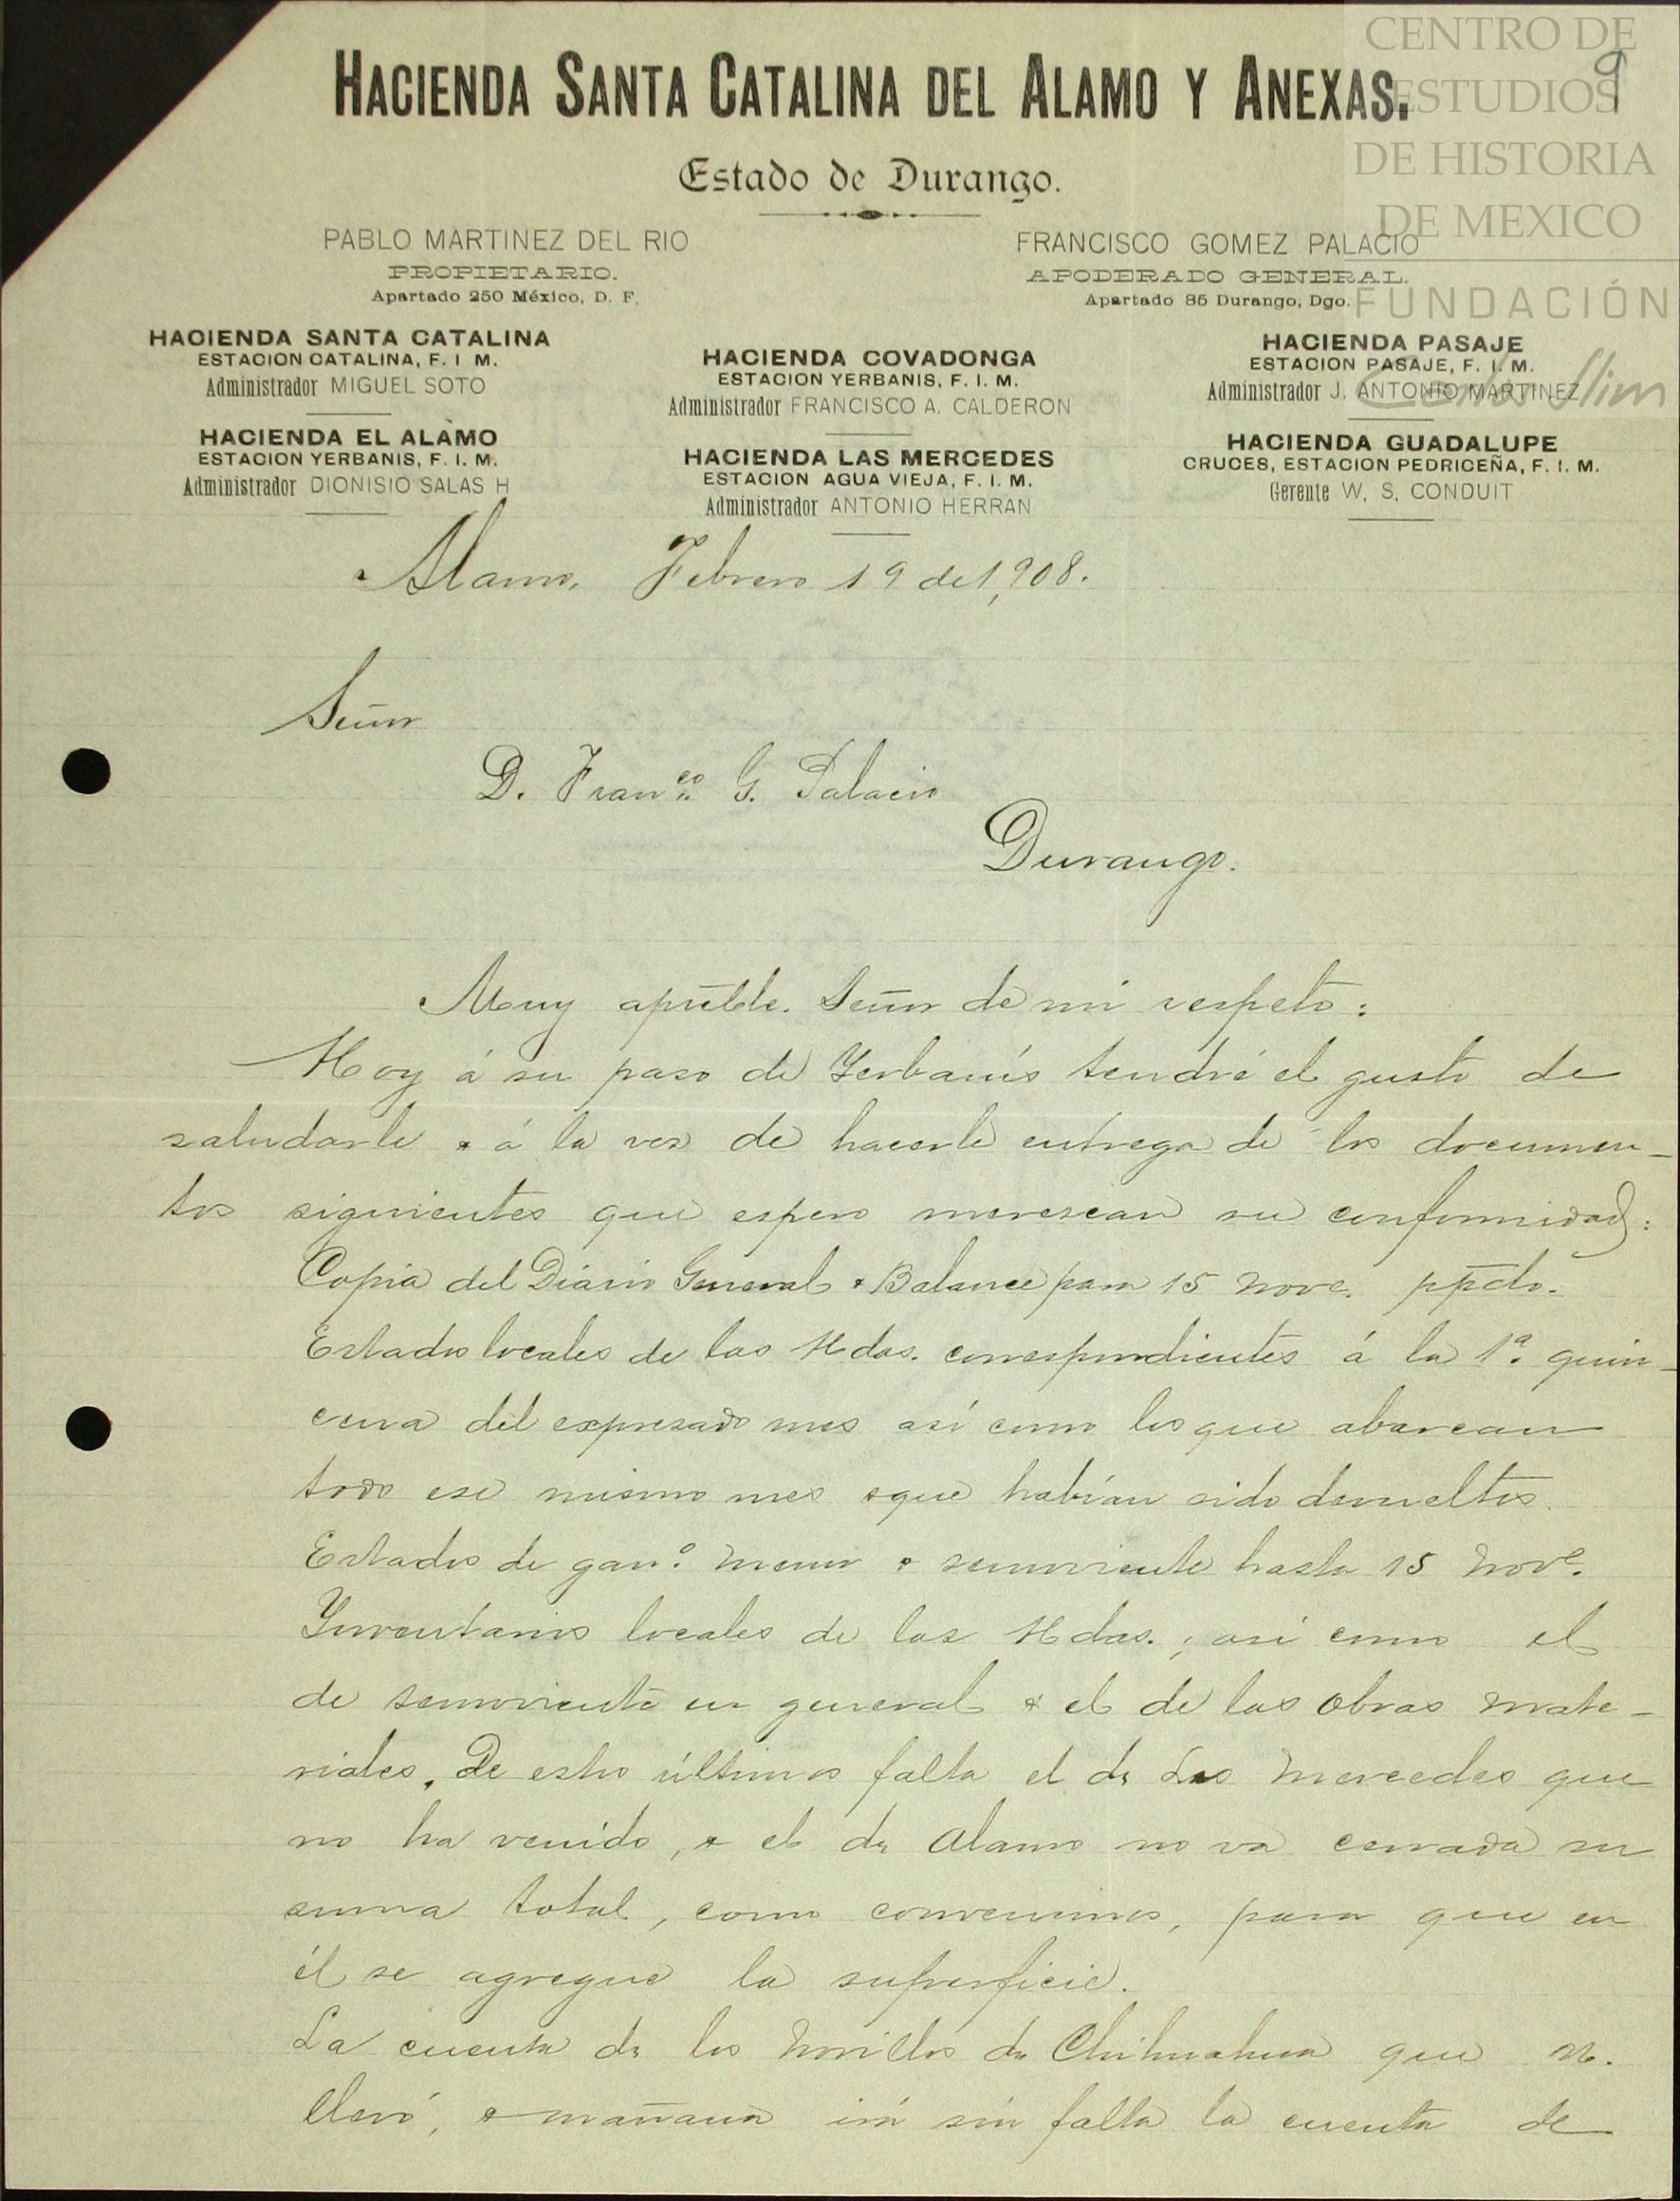 CENTRO DE
ESTUDIOS
DE HISTORIA
DE MEXICO
FUNDACIÓN
Carlos Slim
9
HACIENDA SANTA CATALINA DEL ALAMO Y ANEXAS.
Estado de Durango.
PABLO MARTINEZ DEL RIO
PROPIETARIO.
Apartado 250 México, D. F.
FRANCISCO GOMEZ PALACIO
APODERADO GENERAL.
Apartado 85 Durango, Dgo.
HACIENDA SANTA CATALINA
ESTACION CATALINA, F. I. M.
Administrador MIGUEL SOTO
HACIENDA EL ALAMO
ESTACION YERBANIS, F. I. M.
Administrador DIONISIO SALAS H
HACIENDA COVADONGA
ESTACION YERBANIS, F. I. M.
Administrador FRANCISCO A. CALDERON
HACIENDA LAS MERCEDES
ESTACION AGUA VIEJA, F. I. M.
Administrador ANTONIO HERRAN
HACIENDA PASAJE
ESTACION PASAJE, F. I. M.
Administrador J. ANTONIO MARTINEZ
HACIENDA GUADALUPE
CRUCES, ESTACION PEDRICEÑA, F. I. M.
Gerente W. S. CONDUIT
Alamo, Febrero 19 de 1,908.
Señor
D. Franco. G. Palacio
Durango.
Muy apreble. Señor de mi respeto:
Hoy á su paso de Yerbanís tendré el gusto de
saludarle & á la vez de hacerle entrega de los documen-
tos siguientes que espero merescan su conformidad:
Copia del Diario General & Balance para 15 Nove. ppdo.
Estados locales de las Hdas. correspondientes á la 1a. quin-
cena del expresado mes así como los que abarcan
todo ese mismo mes & que habían sido devueltos.
Estados de gano. menor & semoviente hasta 15 Nove.
Ynventarios locales de las Hdas., así como el
de semoviente en general & el de las obras mate-
riales. De estos últimos falta el de Las Mercedes que
no ha venido, & el de Alamo no va cerrada su
suma total, como convenimos, para que en
él se agregue la superficie.
La cuenta de los Novillos de Chihuahua que N.
llevó, & mañana irá sin falta la cuenta de